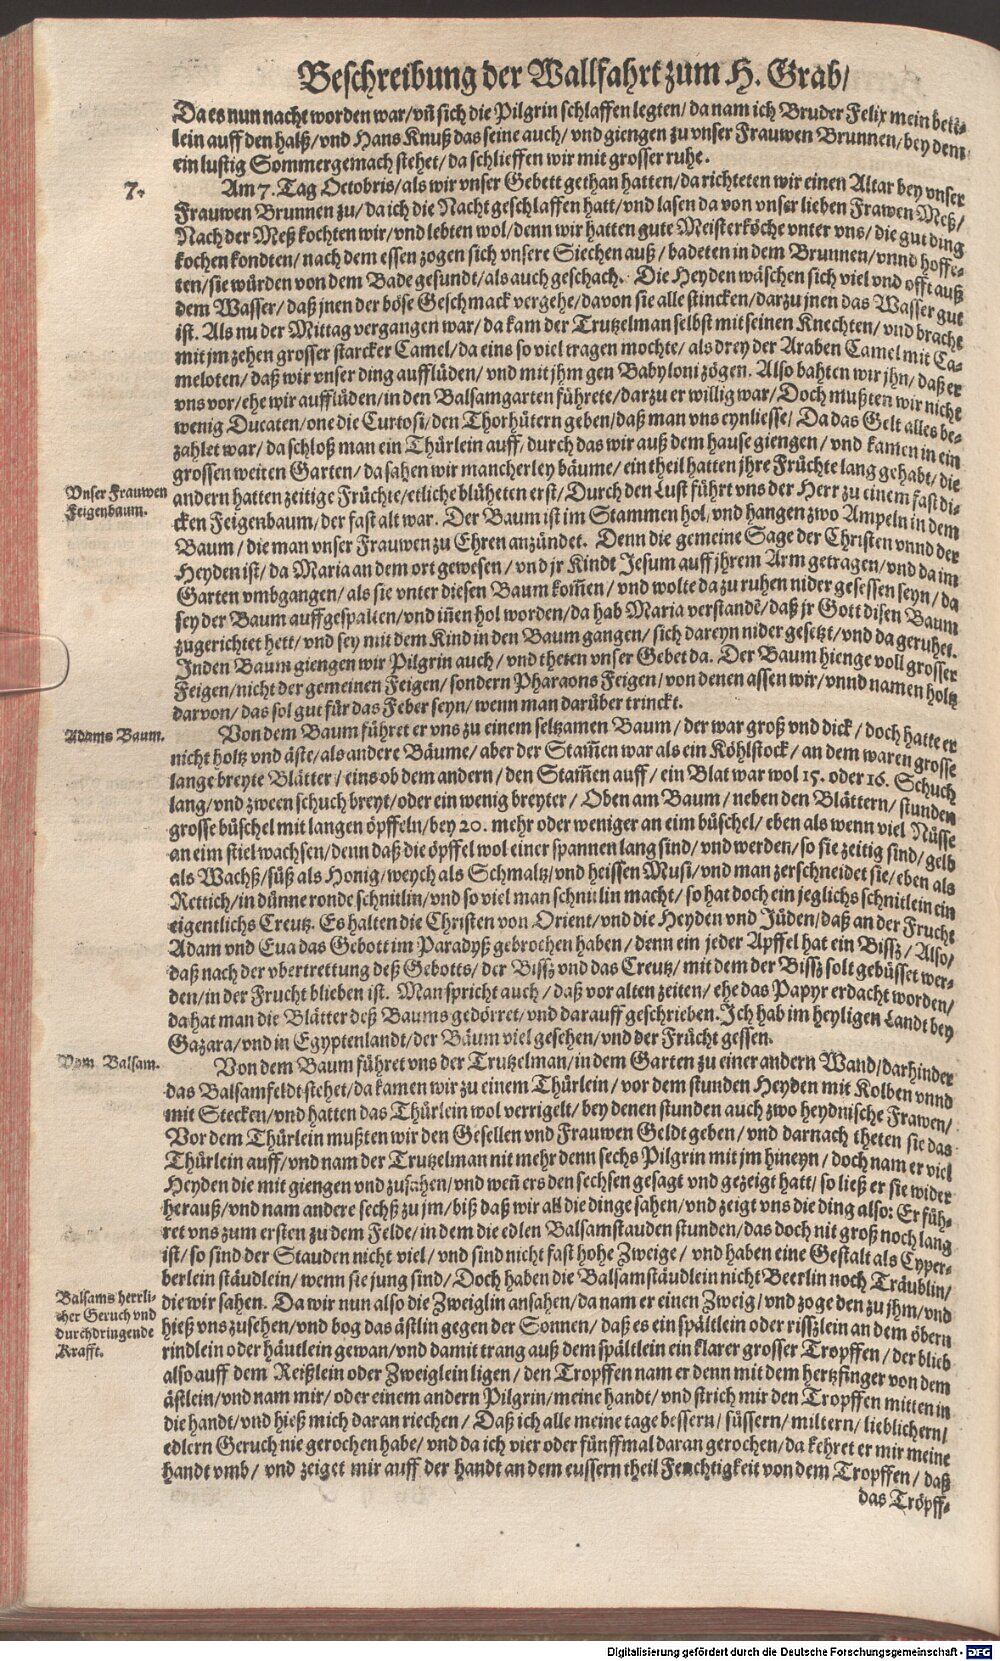 Beschreibung der Wallfahrt zum H. Grab/
Da es nun nacht worden war/ vñ sich die Pilgrin schlaffen legten/ da nam ich Bruder Felix mein bett-
lein auff den halß/ vnd Hans Knuß das seine auch/ vnd giengen zu vnser Frauwen Brunnen/ bey dem
ein lustig Sommergemach stehet/ da schlieffen wir mit grosser ruhe.
7. Am 7. Tag Octobris/ als wir vnser Gebett gethan hatten/ da richteten wir einen Altar bey vnser
Frauwen Brunnen zu/ da ich die Nacht geschlaffen hatt/ vnd lasen da von vnser lieben Frawen Meß/
Nach der Meß kochten wir/ vnd lebten wol/ denn wir hatten gute Meisterköche vnter vns/ die gut ding
kochen kondten/ nach dem essen zogen sich vnsere Siechen auß/ badeten in dem Brunnen/ vnnd hoffe-
ten/ sie würden von dem Bade gesundt/ als auch geschach. Die Heyden wäschen sich viel vnd offt auß
dem Wasser/ daß jnen der böse Geschmack vergehe/ davon sie alle stincken/ darzu jnen das Wasser gut
ist. Als nu der Mittag vergangen war/ da kam der Trutzelman selbst mit seinen Knechten/ vnd bracht
mit jm zehen grosser starcker Camel/ da eins so viel tragen mochte/ als drey der Araben Camel mit Ca-
meloten/ daß wir vnser ding aufflüden/ vnd mit jhm gen Babyloni zögen. Also bahten wir jhn/ daß er
vns vor/ ehe wir aufflüden/ in den Balsamgarten führete/ darzu er willig war/ Doch mußten wir nicht
wenig Ducaten/ one die Curtosi/ den Thorhütern geben/ daß man vns eynliesse/ Da das Gelt alles be-
zahlet war/ da schloß man ein Thürlein auff/ durch das wir auß dem hause giengen/ vnd kamen in ein
grossen weiten Garten/ da sahen wir mancherley bäume/ ein theil hatten jhre Früchte lang gehabt/ die
Vnser Frauwen
Feigenbaum.
andern hatten zeitige Früchte/ etliche blüheten erst/ Durch den Lust führt vns der Herr zu einem fast di-
cken Feigenbaum/ der fast alt war. Der Baum ist im Stammen hol/ vnd hangen zwo Ampeln in dem
Baum/ die man vnser Frauwen zu Ehren anzündet. Denn die gemeine Sage der Christen vnnd der
Heyden ist/ da Maria an dem ort gewesen/ vnd jr Kindt Jesum auff jhrem Arm getragen/ vnd da im
Garten vmbgangen/ als sie vnter diesen Baum kom̃en/ vnd wolte da zu ruhen nider gesessen seyn/ da
sey der Baum auffgespalten/ vnd iñen hol worden/ da hab Maria verstandẽ/ daß jr Gott disen Baum
zugerichtet hett/ vnd sey mit dem Kind in den Baum gangen/ sich dareyn nider gesetzt/ vnd da geruhet.
Inden Baum giengen wir Pilgrin auch/ vnd theten vnser Gebet da. Der Baum hienge voll grosser
Feigen/ nicht der gemeinen Feigen/ sondern Pharaons Feigen/ von denen assen wir/ vnnd namen holtz
darvon/ das sol gut für das Feber seyn/ wenn man darüber trinckt.
Adams Baum.
Von dem Baum führet er vns zu einem seltzamen Baum/ der war groß vnd dick/ doch hatte er
nicht holtz vnd äste/ als andere Bäume/ aber der Stam̃en war als ein Köhlstock/ an dem waren grosse
lange breyte Blätter/ eins ob dem andern/ den Stam̃en auff/ ein Blat war wol 15. oder 16. Schuch
lang/ vnd zween schuch breyt/ oder ein wenig breyter/ Oben am Baum/ neben den Blättern/ stunden
grosse büschel mit langen öpffeln/ bey 20. mehr oder weniger an eim büschel/ eben als wenn viel Nüsse
an eim stiel wachsen/ denn daß die öpffel wol einer spannen lang sind/ vnd werden/ so sie zeitig sind/ gelb
als Wachß/ süß als Honig/ weych als Schmaltz/ vnd heissen Musi/ vnd man zerschneidet sie/ eben als
Rettich/ in dünne ronde schnitlin/ vnd so viel man schnitlin macht/ so hat doch ein jeglichs schnitlein ein
eigentlichs Creutz. Es halten die Christen von Orient/ vnd die Heyden vnd Jüden/ daß an der Frucht
Adam vnd Eua das Gebott im Paradyß gebrochen haben/ denn ein jeder Apffel hat ein Bissz/ Also/
daß nach der vbertrettung deß Gebotts/ der Bissz vnd das Creutz/ mit dem der Bissz solt gebüsset wer-
den/ in der Frucht blieben ist. Man spricht auch/ daß vor alten zeiten/ ehe das Papyr erdacht worden/
da hat man die Blätter deß Baums gedörret/ vnd darauff geschrieben. Ich hab im heyligen Landt bey
Gazara/ vnd in Egyptenlandt/ der Bäum viel gesehen/ vnd der Frücht gessen.
Vom Balsam.
Von dem Baum führet vns der Trutzelman/ in dem Garten zu einer andern Wand/ darhinder
das Balsamfeldt stehet/ da kamen wir zu einem Thürlein/ vor dem stunden Heyden mit Kolben vnnd
mit Stecken/ vnd hatten das Thürlein wol verrigelt/ bey denen stunden auch zwo heydnische Frawen/
Vor dem Thürlein mußten wir den Gesellen vnd Frauwen Geldt geben/ vnd darnach theten sie das
Thürlein auff/ vnd nam der Trutzelman nit mehr denn sechs Pilgrin mit jm hineyn/ doch nam er viel
Heyden die mit giengen vnd zusahen/ vnd weñ ers den sechsen gesagt vnd gezeigt hatt/ so ließ er sie wider
herauß/ vnd nam andere sechß zu jm/ biß daß wir all die dinge sahen/ vnd zeigt vns die ding also: Er füh-
ret vns zum ersten zu dem Felde/ in dem die edlen Balsamstauden stunden/ das doch nit groß noch lang
ist/ so sind der Stauden nicht viel/ vnd sind nicht fast hohe Zweige/ vnd haben eine Gestalt als Cyper-
berlein stäudlein/ wenn sie jung sind/ Doch haben die Balsamstäudlein nicht Beerlin noch Träublin/
Balsams herrli-
cher Geruch vnd
durchdringende
Krafft.
die wir sahen. Da wir nun also die Zweiglin ansahen/ da nam er einen Zweig/ vnd zoge den zu jhm/ vnd
hieß vns zusehen/ vnd bog das ästlin gegen der Sonnen/ daß es ein spältlein oder risszlein an dem öbern
rindlein oder häutlein gewan/ vnd damit trang auß dem spältlein ein klarer grosser Tropffen/ der blieb
also auff dem Reißlein oder Zweiglein ligen/ den Tropffen nam er denn mit dem hertzfinger von dem
ästlein/ vnd nam mir/ oder einem andern Pilgrin/ meine handt/ vnd strich mir den Tropffen mitten in
die handt/ vnd hieß mich daran riechen/ Daß ich alle meine tage bessern/ süssern/ miltern/ lieblichern/
edlern Geruch nie gerochen habe/ vnd da ich vier oder fünffmal daran gerochen/ da kehret er mir meine
handt vmb/ vnd zeiget mir auff der handt an dem eussern theil Feuchtigkeit von dem Tropffen/ daß
das Tröpff-
Digitalisierung gefördert durch die Deutsche Forschungsgemeinschaft - DFG